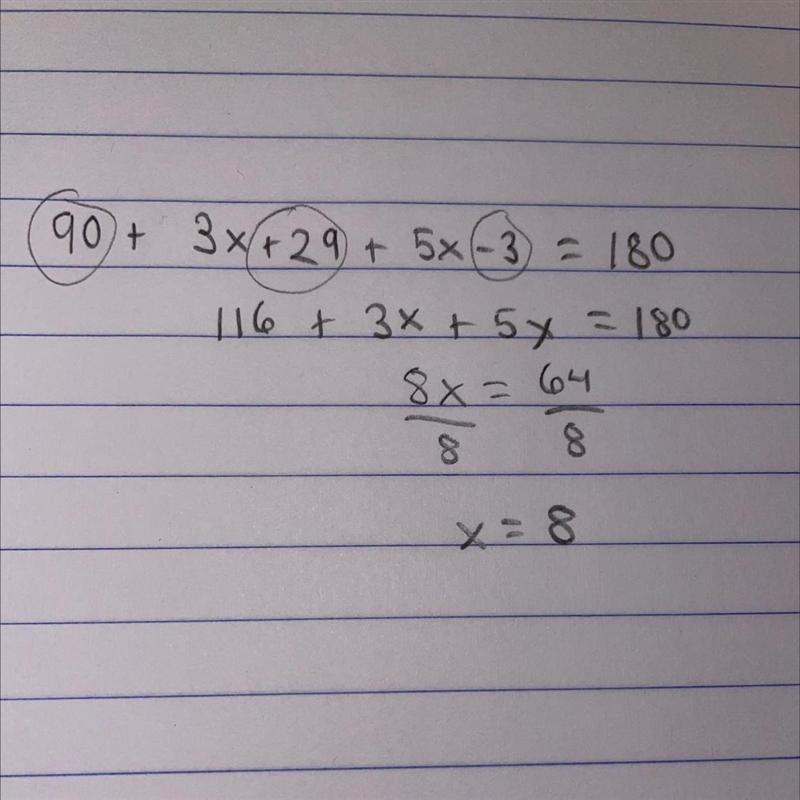 90 + 3x + 29 + 5x - 3 = 180
116 + 3x + 5x = 180
8x = 64
8 8
x = 8